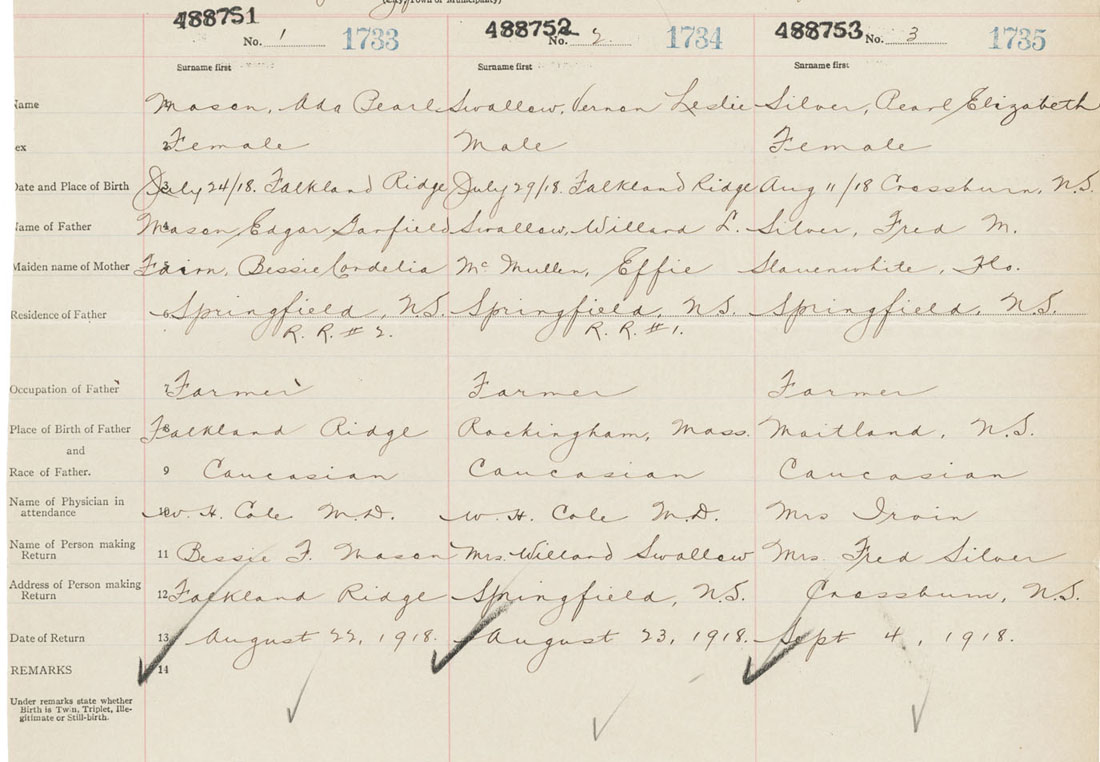 (City, Town or Municipality)
488751 No. 1 1733 488752 No. 2 1734 488753 No. 3 1735
Surname first Surname first Surname first
Name Mason, Ada Pearl Swallow, Vernon Leslie Silver, Pearl Elizabeth
ex 2 Female Male Female
Date and Place of Birth 3 July 24/18. Falkland Ridge July 29/18. Falkland Ridge Aug 11/18 Crossburn, N.S.
Name of Father 4 Mason, Edgar Garfield Swallow, Willard L. Silver, Fred M.
Maiden name of Mother 5 Fairn, Bessie Cordelia McMullen, Effie Slauenwhite, Flo.
Residence of Father 6 Springfield, N.S. Springfield, N.S. Springfield, N.S.
R. R. # 2. R. R. # 1.
Occupation of Father 7 Farmer Farmer Farmer
Place of Birth of Father 8 Falkland Ridge Rockingham, Mass. Maitland, N.S.
and
Race of Father. 9 Caucasian Caucasian Caucasian
Name of Physician in
attendance 10 W. H. Cole M.D. W. H. Cole M.D. Mrs Irvin
Name of Person making
Return 11 Bessie F. Mason Mrs. Willard Swallow Mrs. Fred Silver
Address of Person making
Return 12 Falkland Ridge Springfield, N.S. Crossburn, N.S.
Date of Return 13 August 22, 1918. August 23, 1918. Sept 4, 1918.
REMARKS 14
Under remarks state whether
Birth is Twin, Triplet, Ille-
gitimate or Still-birth.